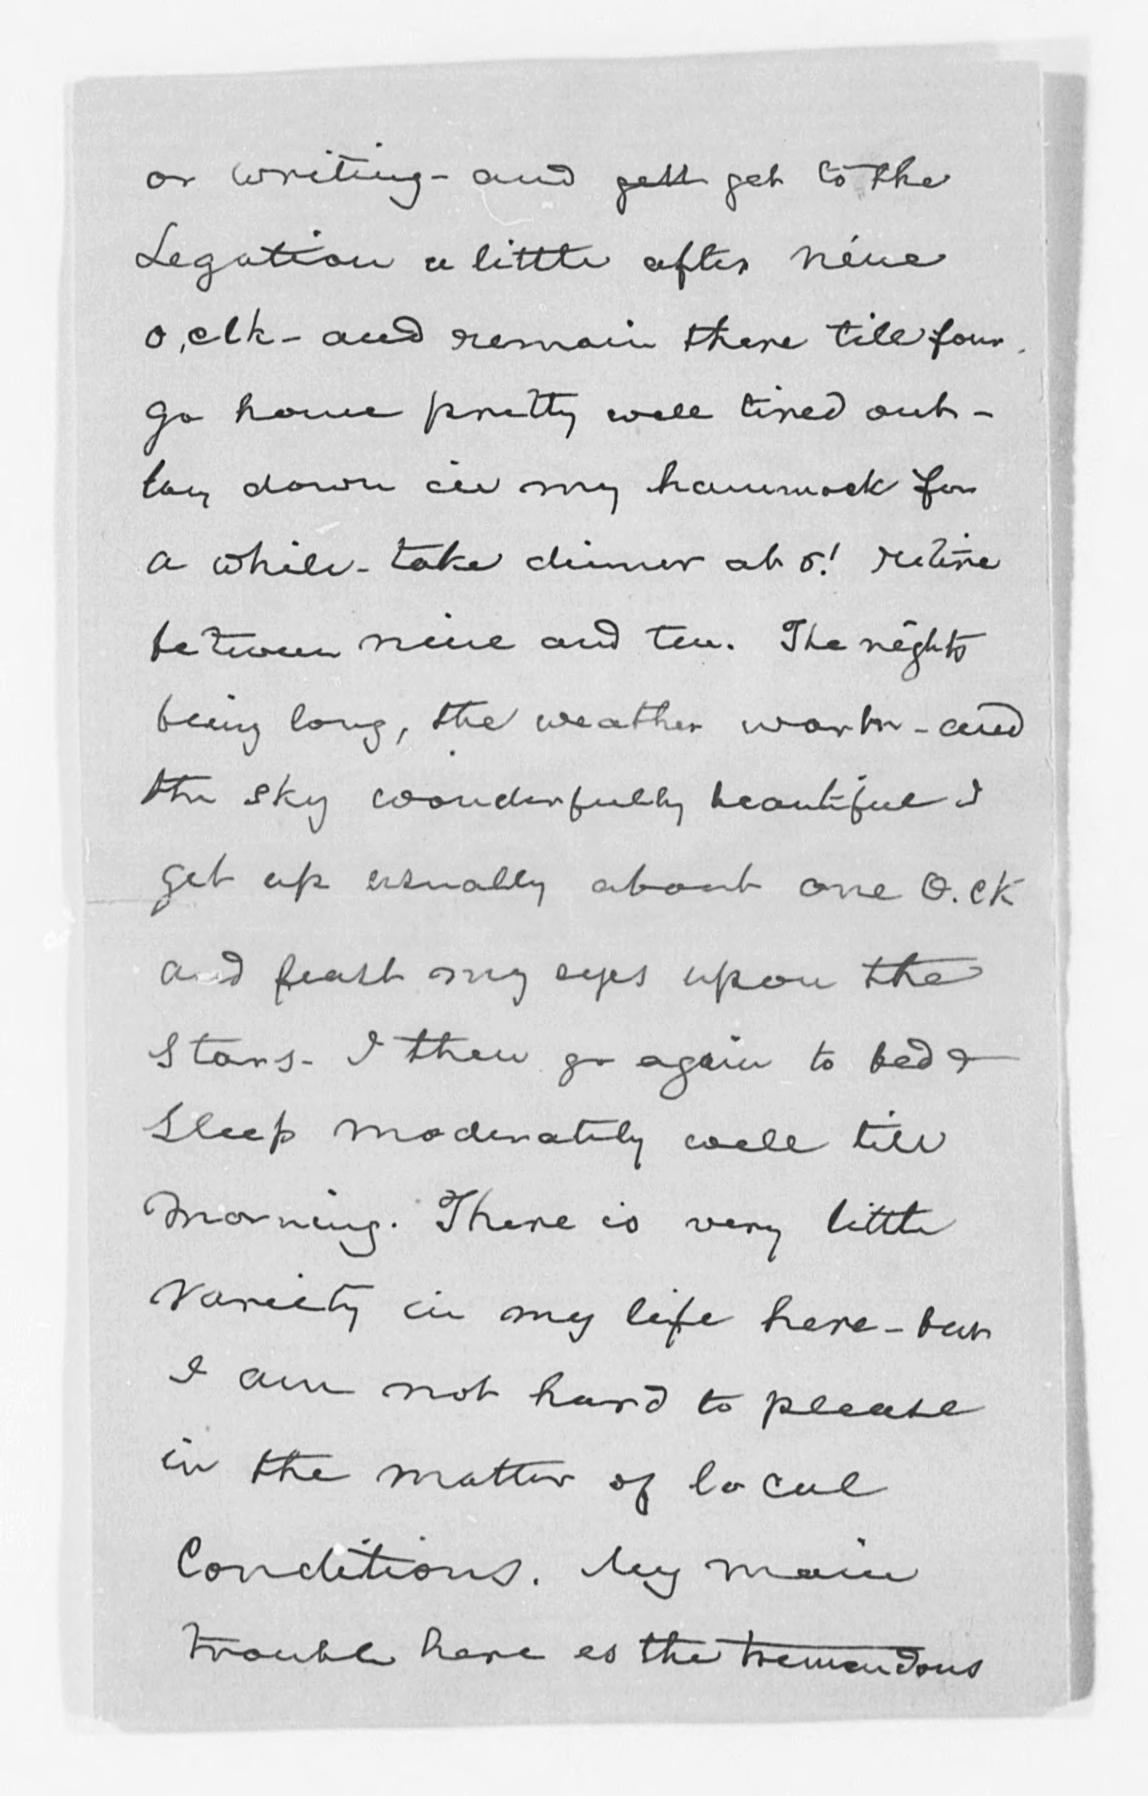 or writing - and gett get to the
Legation a little after nine
o,clk - and remain there till four.
go home pretty well tired out -
lay down in my hammock for
a while - take dinner at 5! retire
between nine and ten. The nights
being long, the weather warm - and
the sky wonderfully beautiful I
get up usually about one O.ck
and feast my eyes upon the
stars - I then go again to bed &
sleep moderately well till
morning. There is very little
variety in my life here - but
I am not hard to please
in the matter of local
Conditions. My main
trouble here is the tremendous